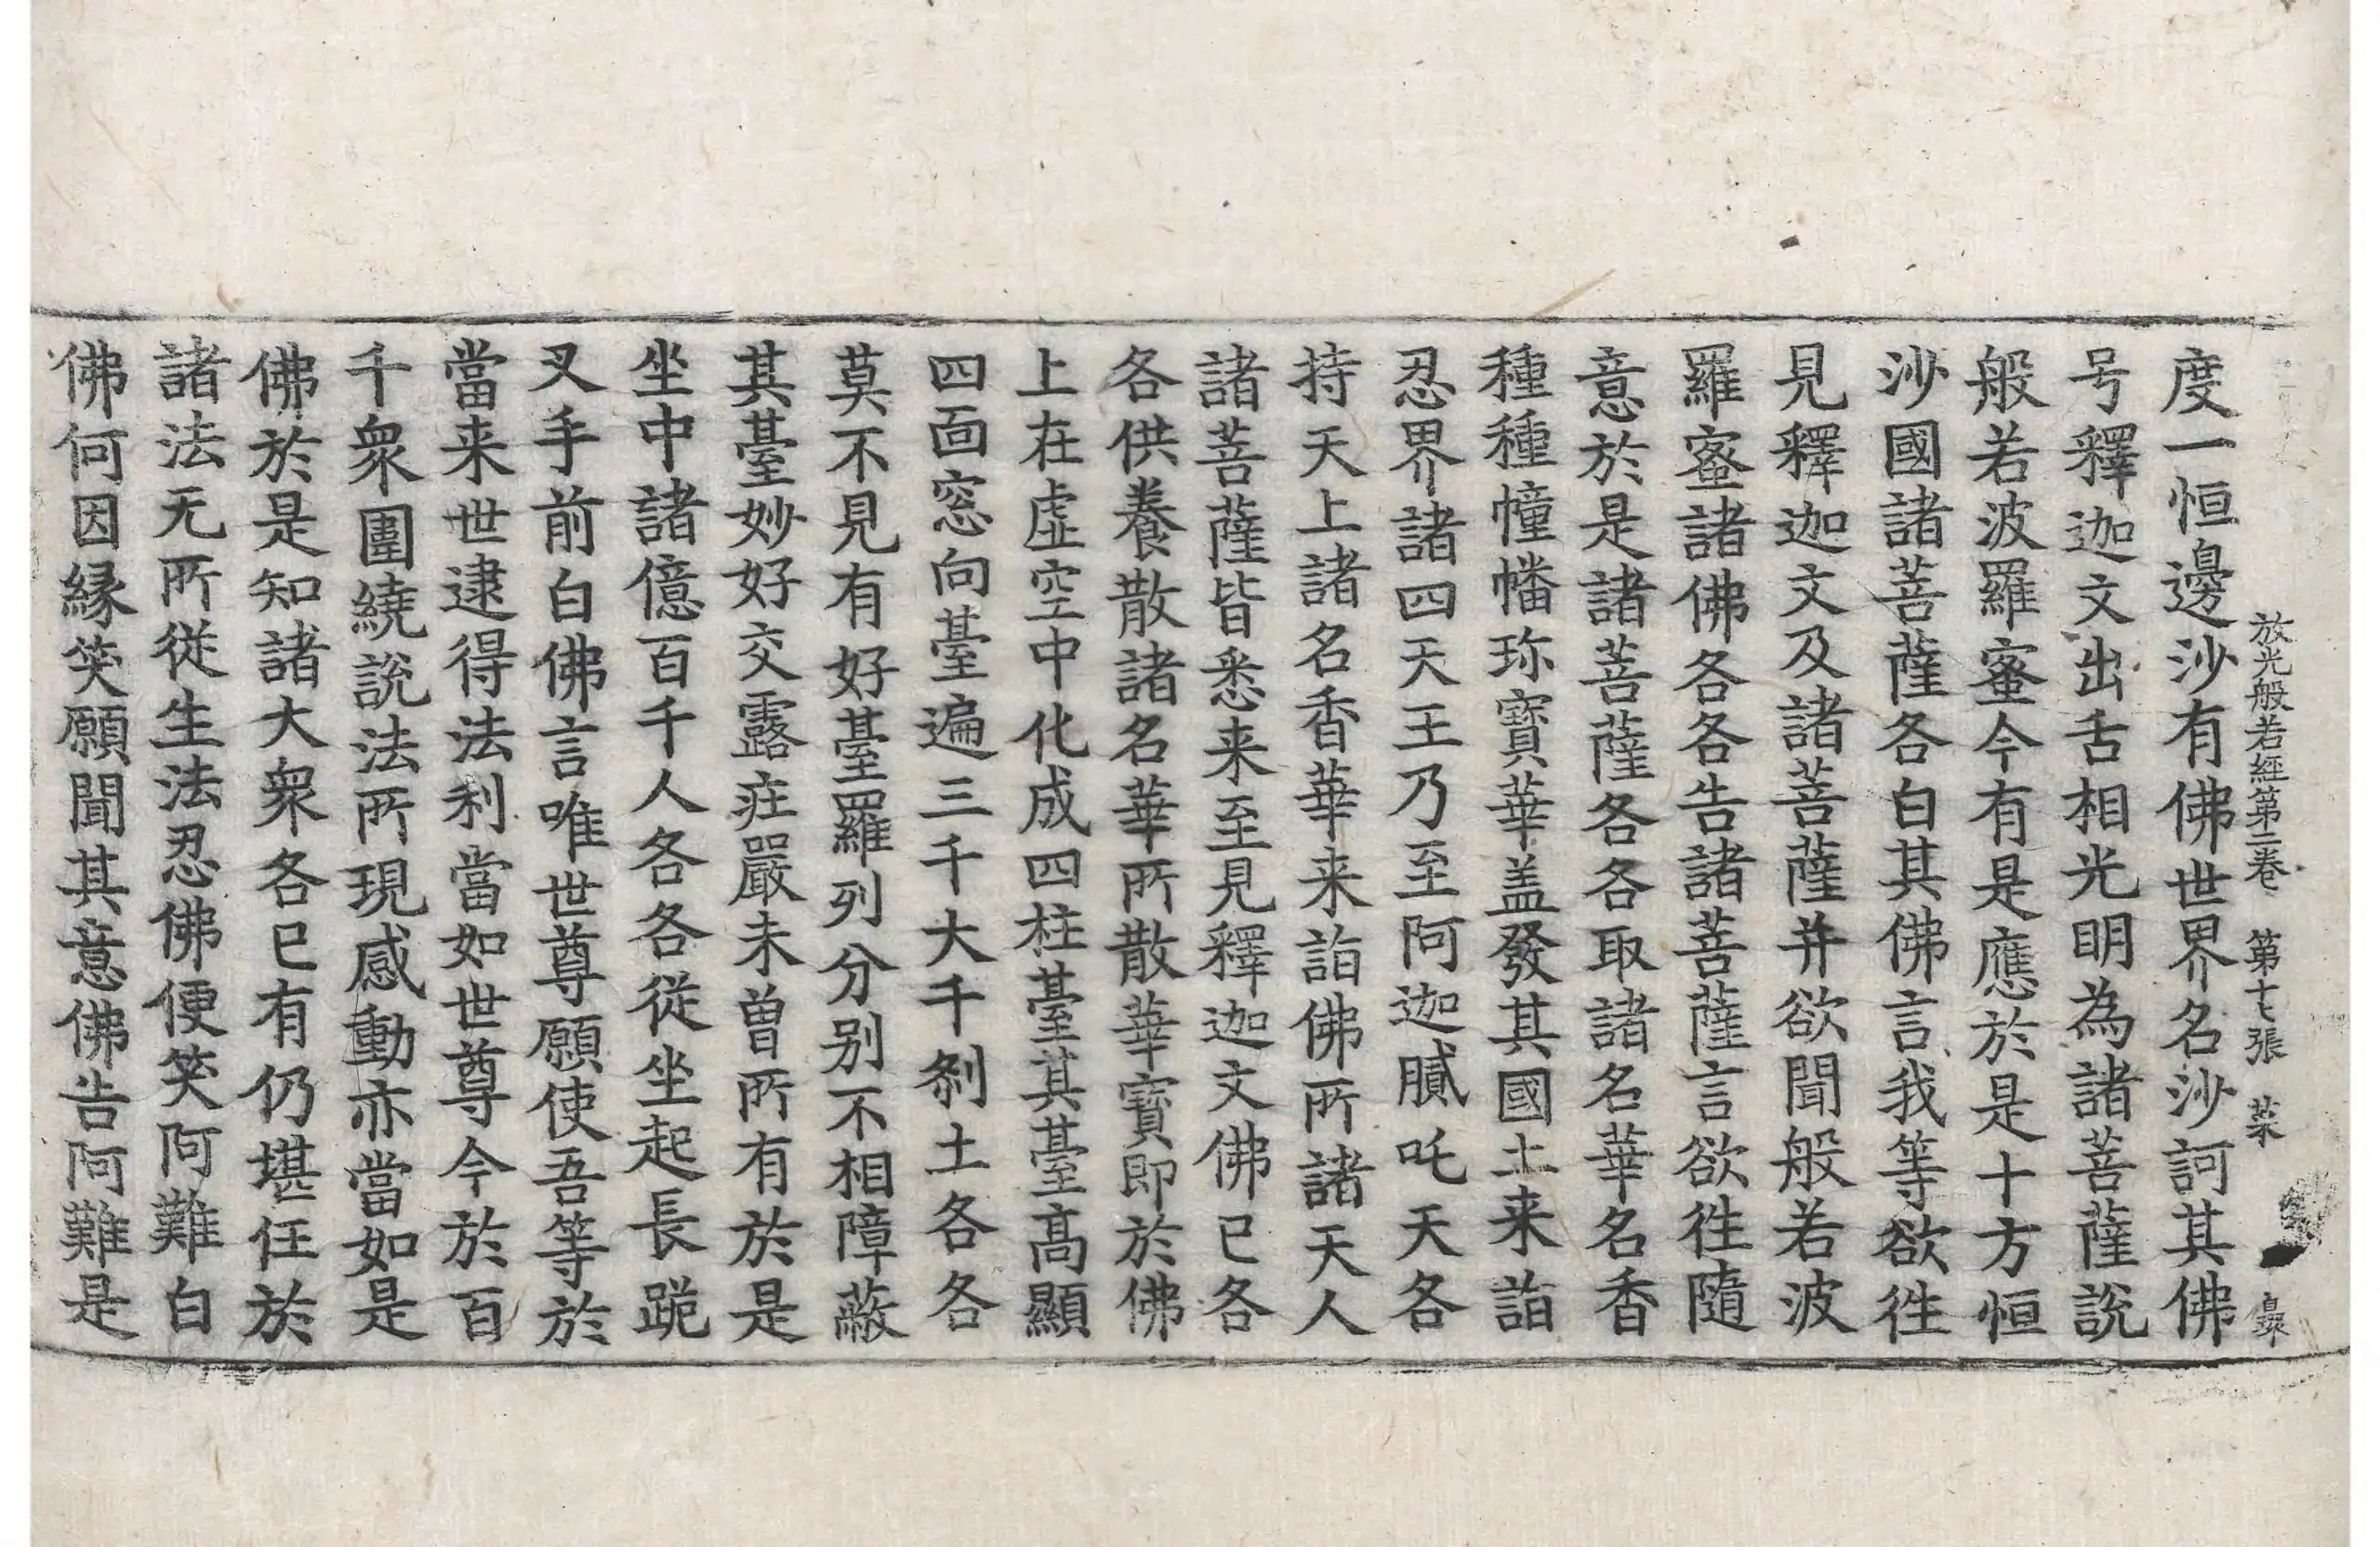 放光般若經第二卷 第十七張 菜
度一恒邊沙有佛世界名沙訶其佛
号釋迦文出舌相光明為諸菩薩說
般若波羅蜜今有是應於是十方恒
沙國諸菩薩各白其佛言我等欲徃
見釋迦文及諸菩薩并欲聞般若波
羅蜜諸佛各各告諸菩薩言欲徃隨
意於是諸菩薩各各取諸名華名香
種種幢幡珎寶華盖發其國土来詣
忍界諸四天王乃至阿迦膩吒天各
持天上諸名香華来詣佛所諸天人
諸菩薩皆悉来至見釋迦文佛已各
各供養散諸名華所散華寶即於佛
上在虛空中化成四柱臺其臺高顯
四面窓向臺遍三千大千剎土各各
莫不見有好臺羅列分别不相障蔽
其臺妙好交露庄嚴未曽所有於是
坐中諸億百千人各各從坐起長跪
叉手前白佛言唯世尊願使吾等於
當来世逮得法利當如世尊今於百
千衆圍繞說法所現感動亦當如是
佛於是知諸大衆各已有仍堪任於
諸法无所從生法忍佛便笑阿難白
佛何因縁笑願聞其意佛告阿難是